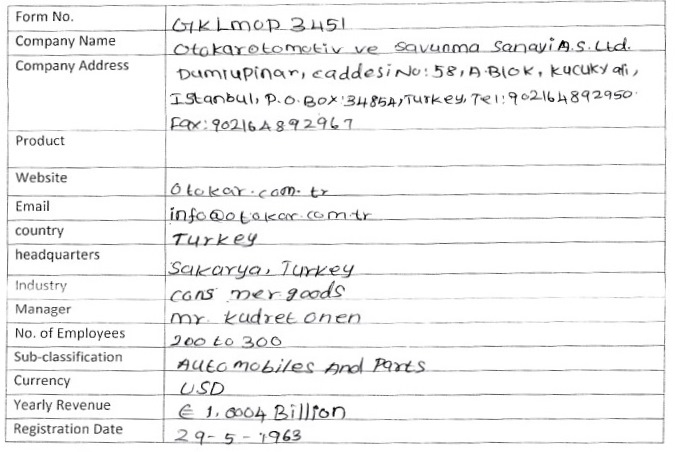 Form No. GIKLmop 3451
Company Name Otokarotomotiv ve savunma SanayiA.S. Ltd.
Company Address Dumlupinar, caddesi No: 58, A.Blok, Kucukyali,
Istanbul, P.O.Box: 34854, Turkey, Tel: 902164892950
Fax: 902164892967
Product
Website Otokar.com.tr
Email info@otokar.com.tr
country Turkey
headquarters Sakarya, Turkey
Industry consmer goods
Manager mr. kudret onen
No. of Employees 200 to 300
Sub-classification Automobiles And Parts
Currency USD
Yearly Revenue € 1.0004 Billion
Registration Date 29-5-1963